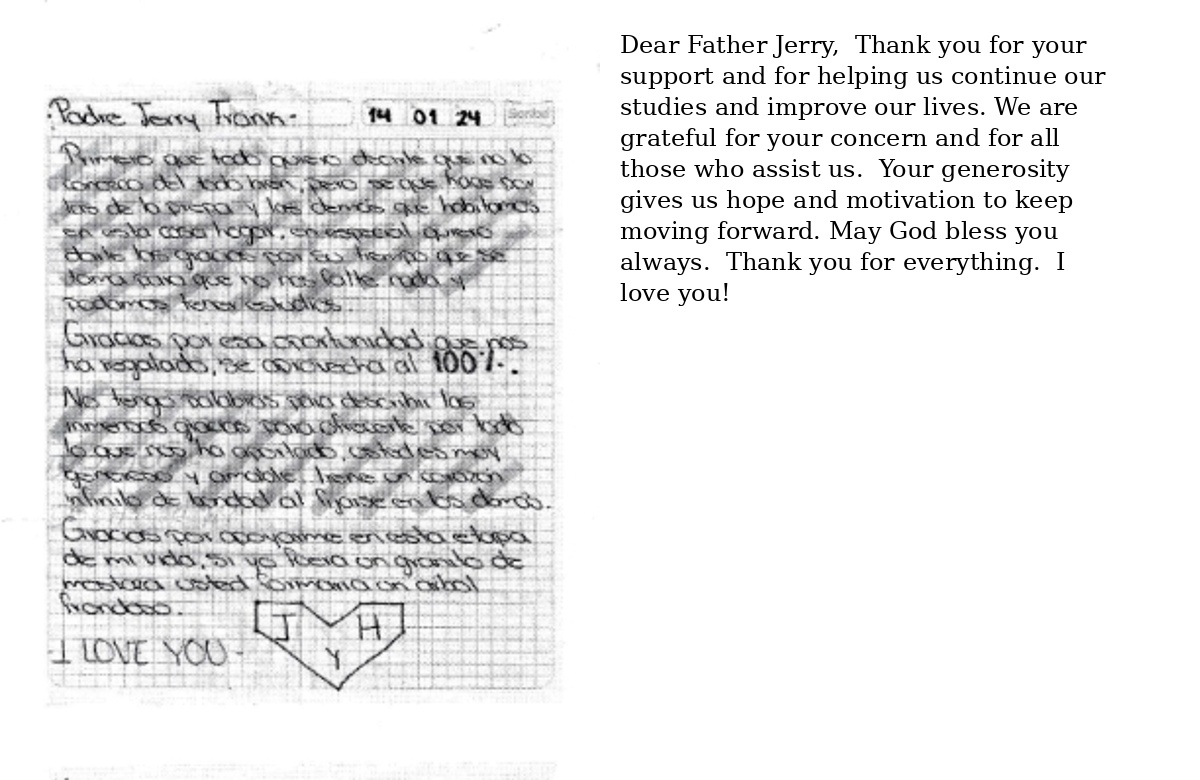 ·Padre Jerry Frank-
14 01 24
Scribe
Primero que todo quiero decirle que no lo
conozco del todo bien, pero se que hace por
las de la prepa y las demás que habitamos
en esta casa hogar, en especial quiero
darle las gracias por su tiempo que se
toma para que no nos falte nada y
podamos tener estudios.
Gracias por esa oportunidad que nos
ha regalado, se aprovecha al 100%.
No tengo palabras para describir las
inmensas gracias para ofrecerle por todo
lo que nos ha aportado, usted es muy
generoso y amable tiene un corazón
infinito de bondad al fijarse en los demás.
Gracias por apoyarme en esta etapa
de mi vida. Si yo fuera un granito de
mostaza usted formaria un arbol
frondoso.
-I LOVE YOU-
J H
Y
Dear Father Jerry,  Thank you for your
support and for helping us continue our
studies and improve our lives. We are
grateful for your concern and for all
those who assist us.  Your generosity
gives us hope and motivation to keep
moving forward. May God bless you
always.  Thank you for everything.  I
love you!